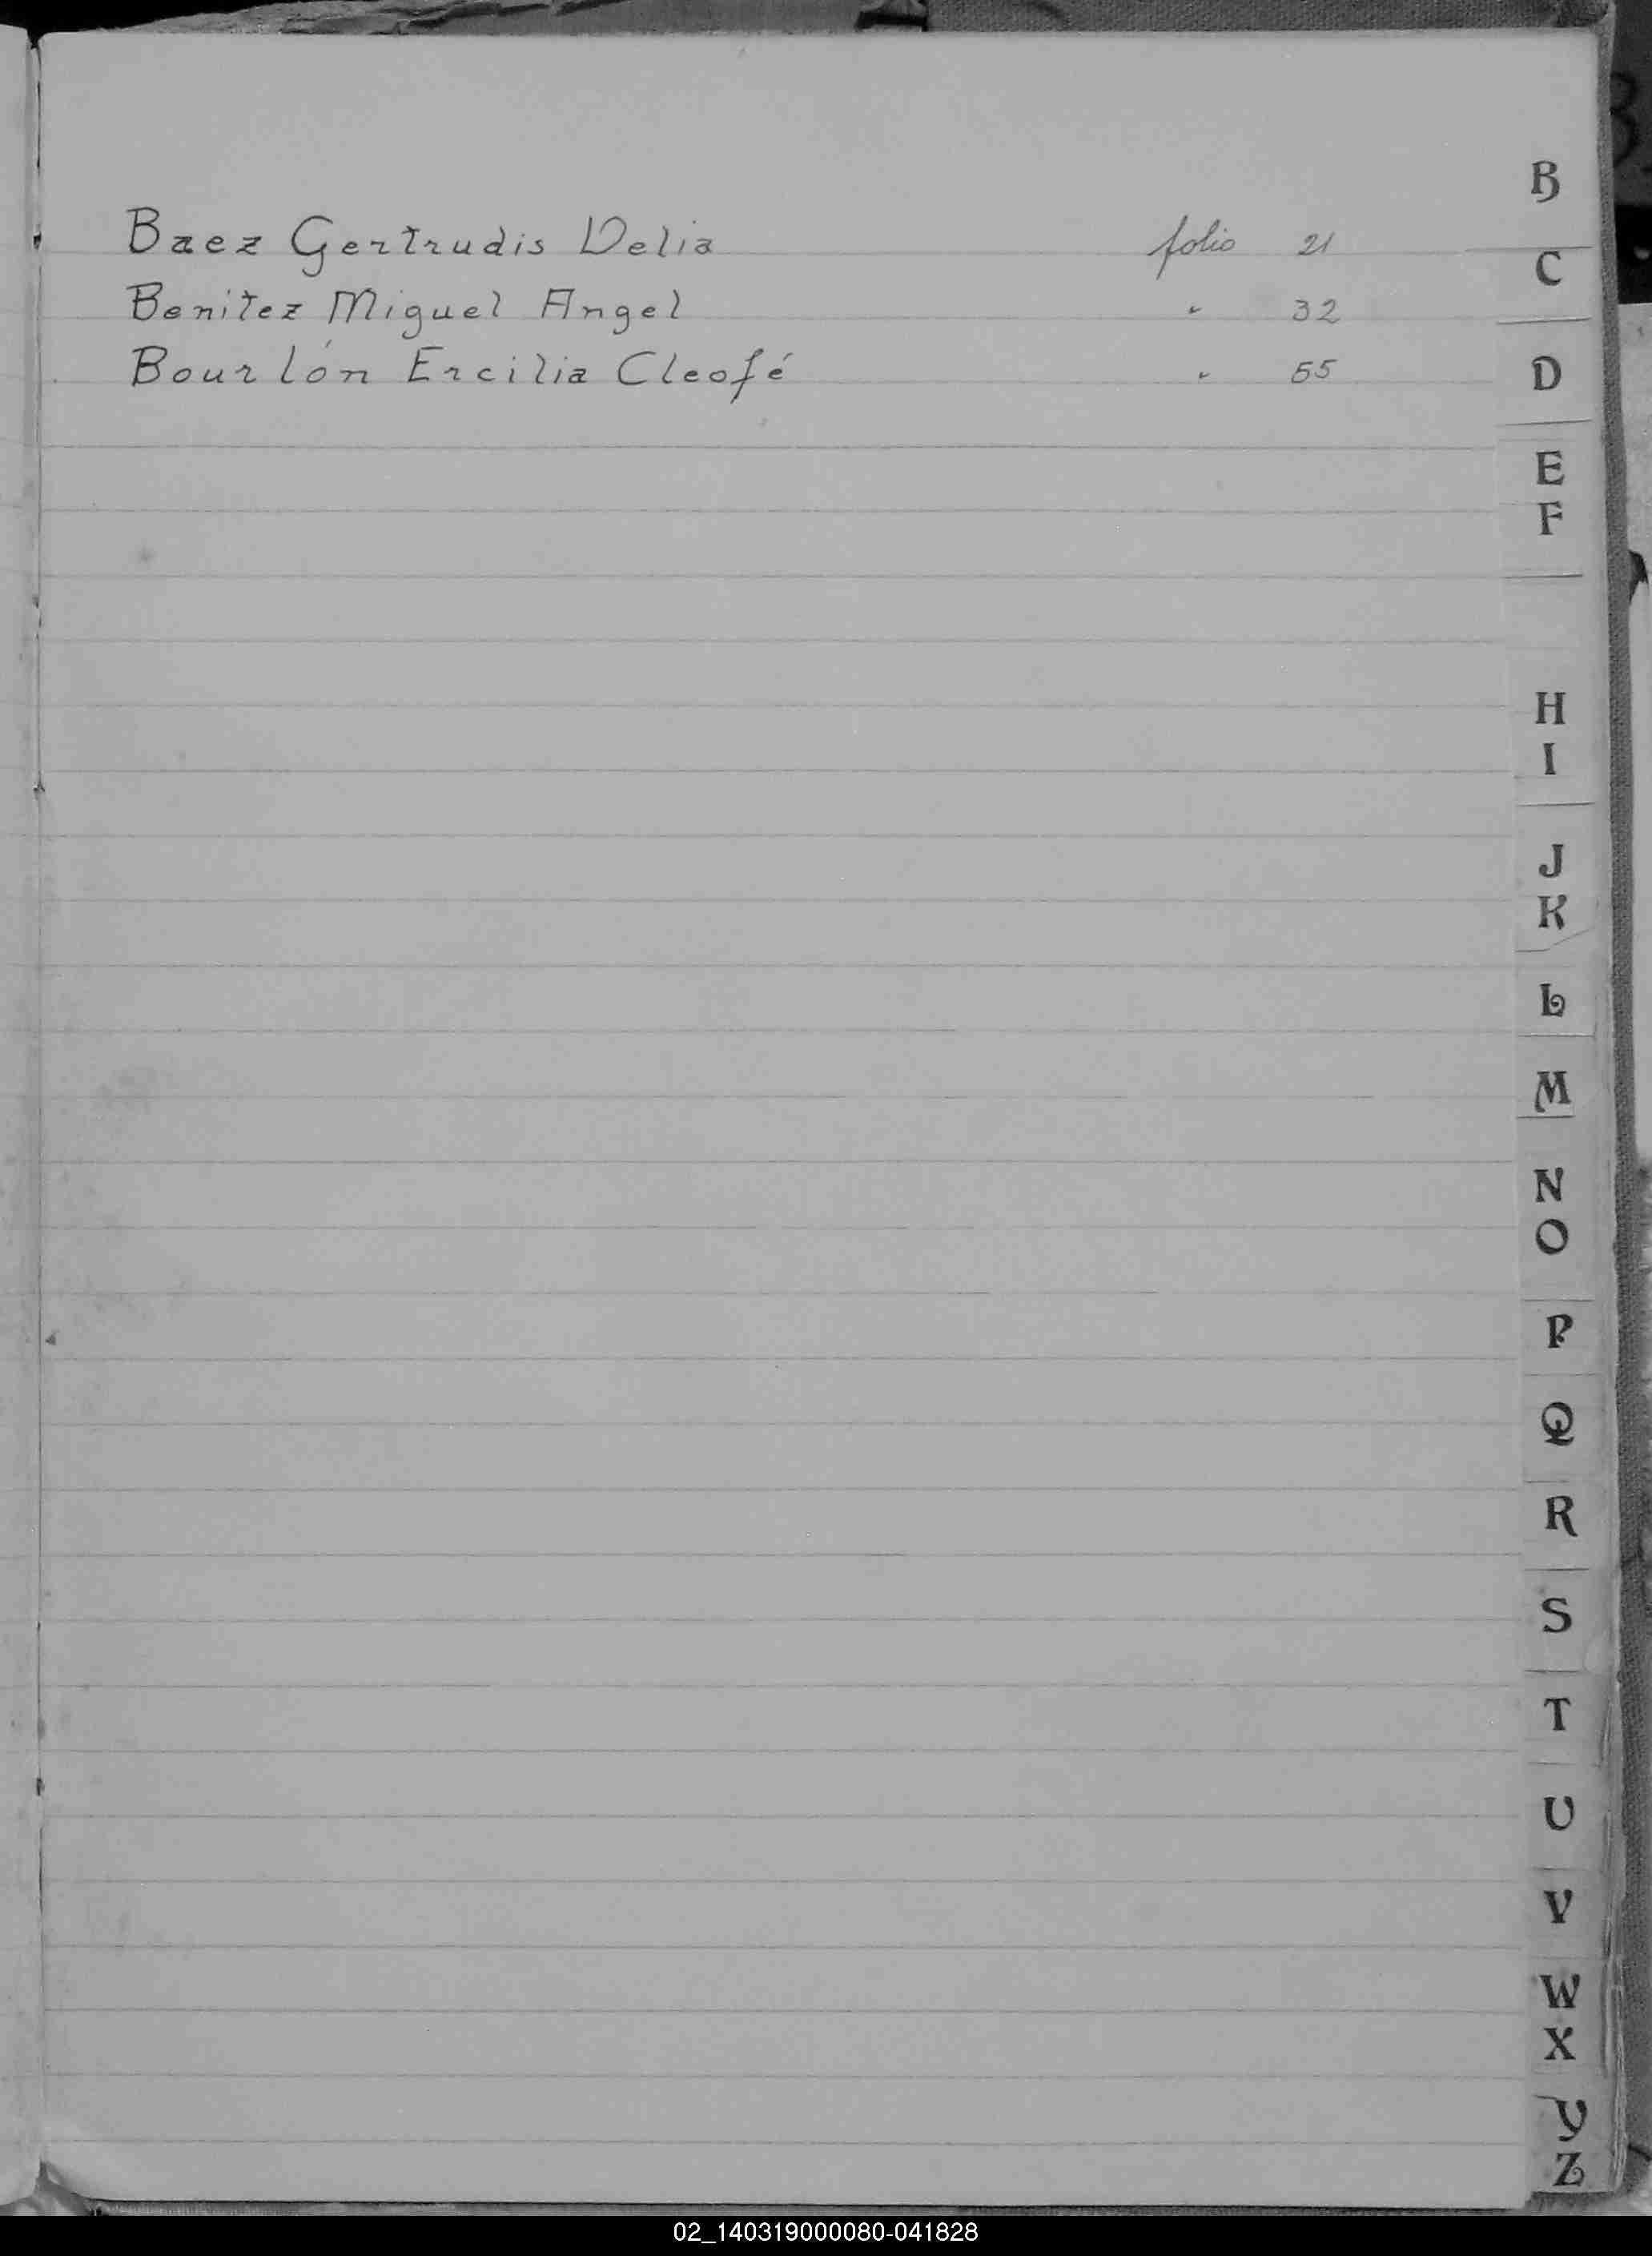 Baez Gertrudis Delia folio 21
Benitez Miguel Angel " 32
Bourlón Ercilia Cleofé " 55
B
C
D
E
F
H
I
J
K
L
M
N
O
P
Q
R
S
T
U
V
W
X
Y
Z
02_140319000080-041828